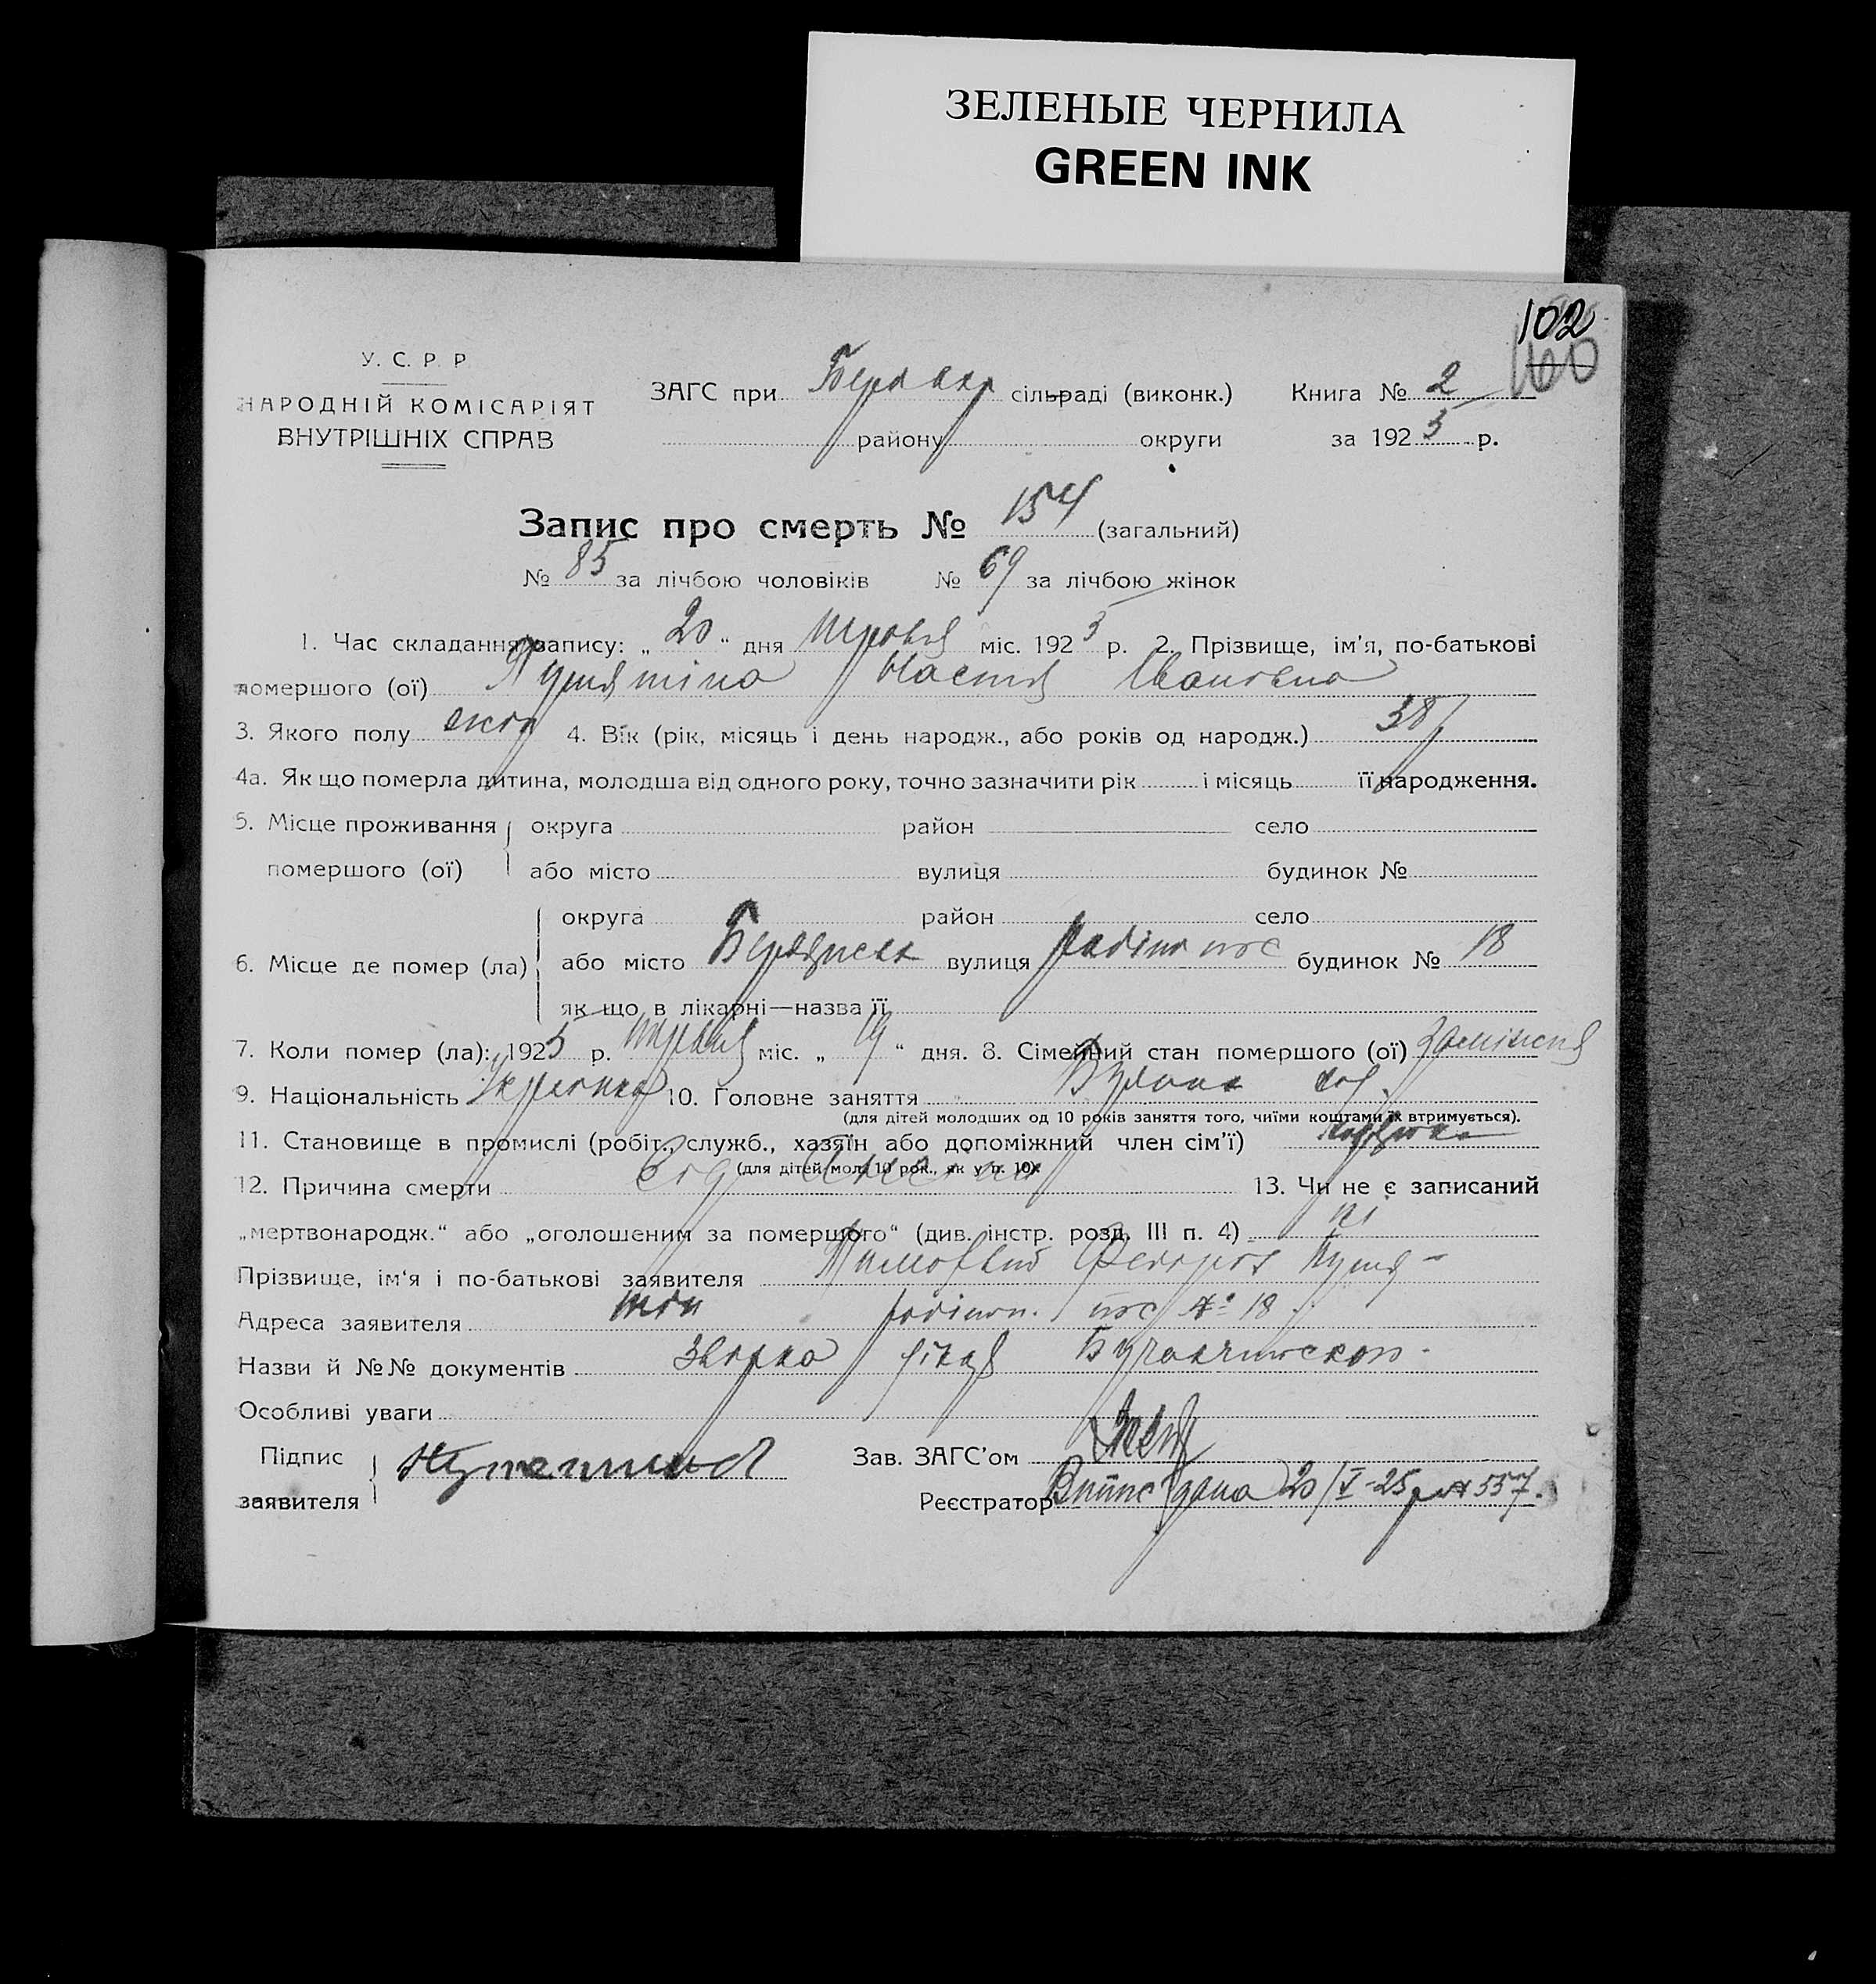 ЗЕЛЕНЫЕ ЧЕРНИЛА
GREEN INK
102
100
У. С. Р. Р.
НАРОДНІЙ КОМІСАРІЯТ
ВНУТРІШНІХ СПРАВ
ЗАГС при сільраді (виконк.) Книга № 2
району округи за 1925 р.
Запис про смерть № 154 (загальний)
№ 85 за лічбою чоловіків № 69 за лічбою жінок
1. Час складання запису: „ 20 “ дня травня міс. 1925 р. 2. Прізвище, ім'я, по-батькові
помершого (ої) Путятіна Настя Івановна
3. Якого полу жін 4. Вік (рік, місяць і день народж., або років од народж.) 38
4а. Як що померла дитина, молодша від одного року, точно зазначити рік і місяць її народження.
5. Місце проживання округа район село
помершого (ої) або місто вулиця будинок №
округа район село
6. Місце де помер (ла) або місто Бердянськ вулиця будинок № 18
як що в лікарні—назва її
7. Коли помер (ла): 1925 р. травня міс. „ 19 “ дня. 8. Сімейний стан помершого (ої) замінся
9. Національність Українка 10. Головне заняття
(для дітей молодших од 10 років заняття того, чиїми коштами їх втримується).
11. Становище в промислі (робіт., служб., хазяїн або допоміжний член сім'ї)
(для дітей мол. 10 рок., як у п. 10).
12. Причина смерти од 13. Чи не є записаний
„мертвонародж.“ або „оголошеним за помершого“ (див. інстр. розд. III п. 4) ні
Прізвище, ім'я і по-батькові заявителя Тимофвій Федоров Путя-
Адреса заявителя тін пос № 18
Назви й №№ документів
Особливі уваги
Підпис
заявителя
Зав. ЗАГС'ом
Реєстратор Випис дана 20/V-25 р № 557.